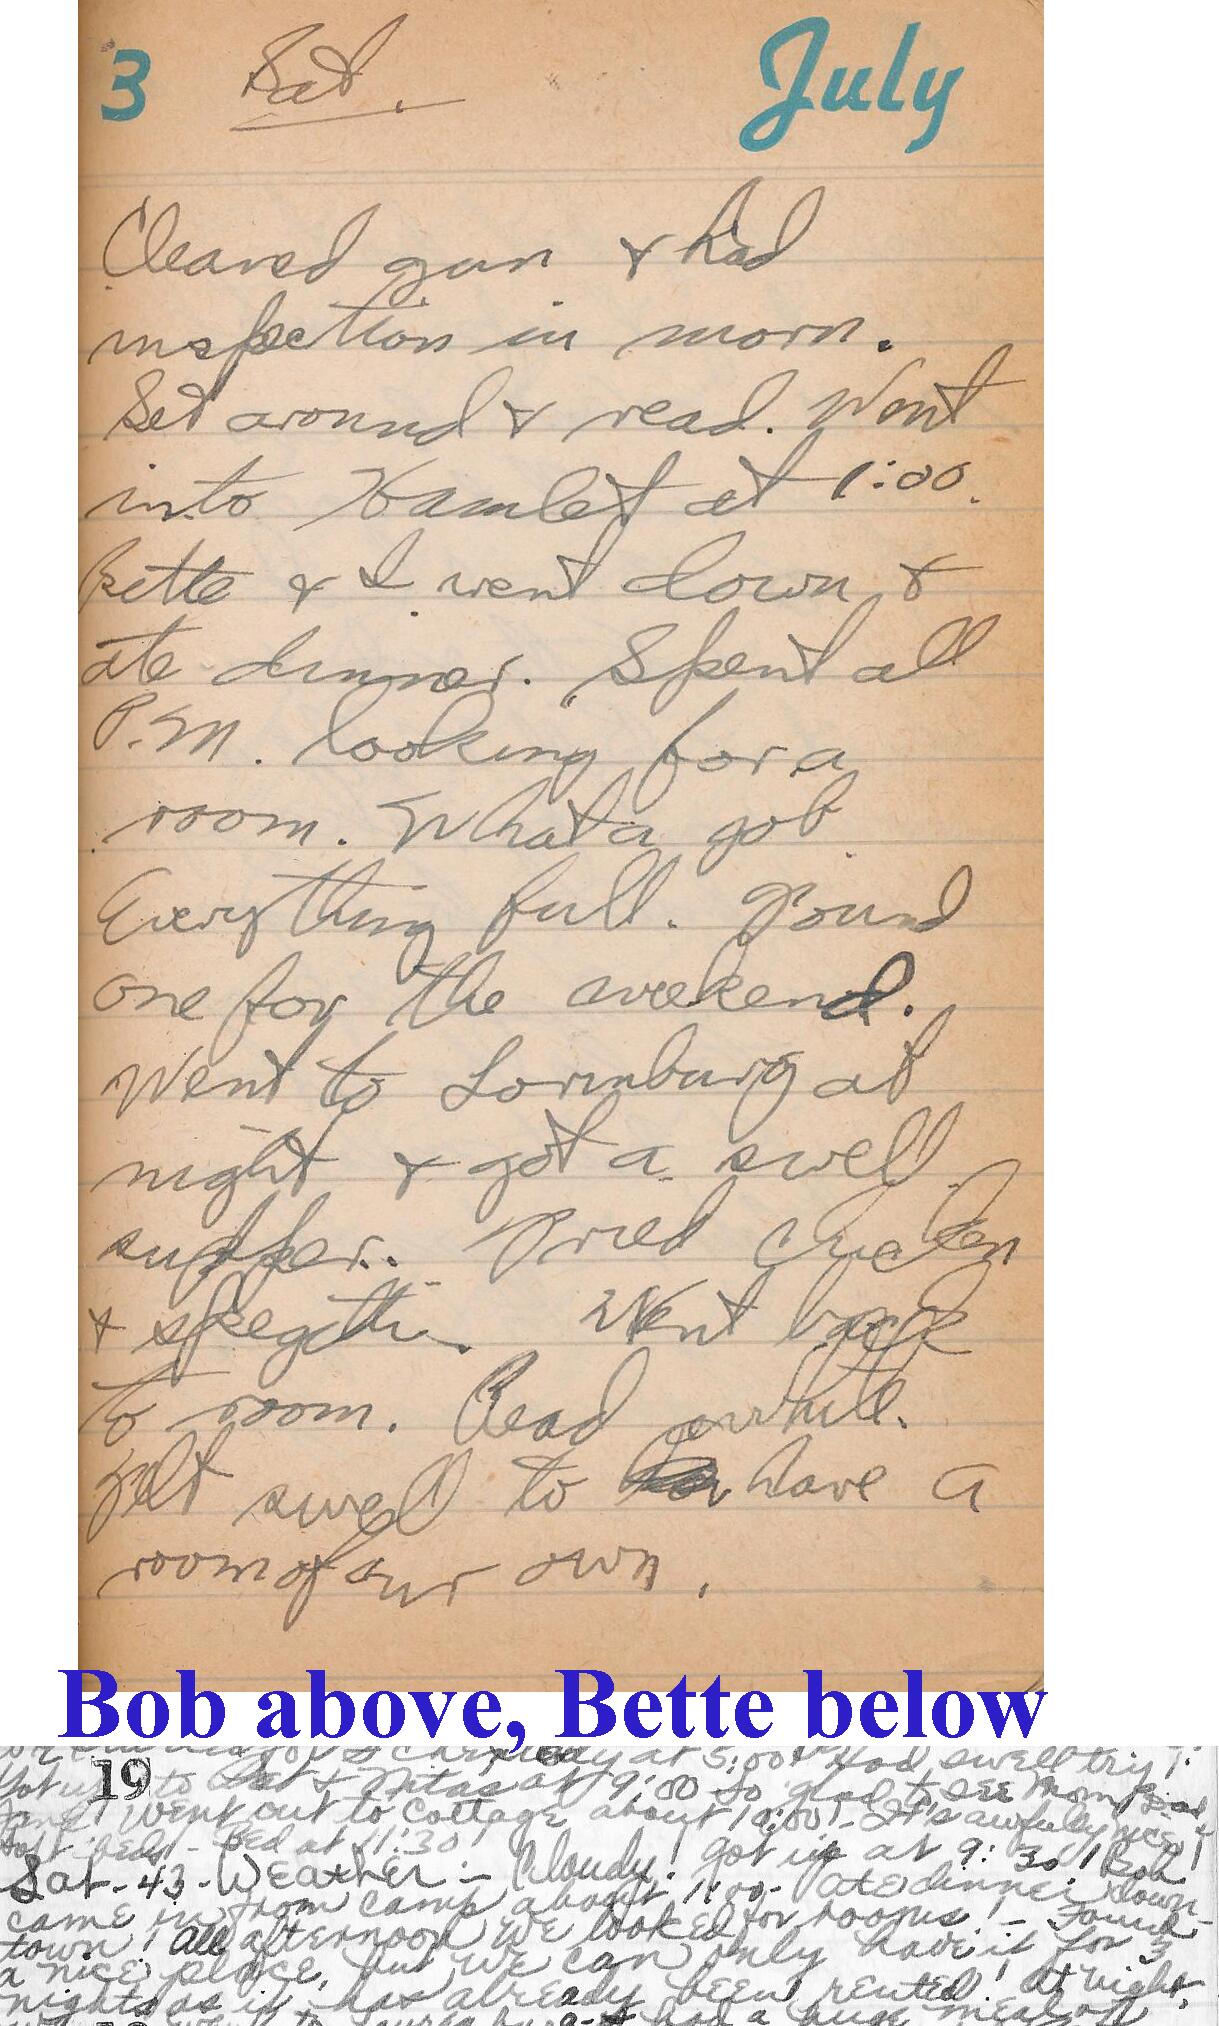 3 Sat. July
Cleaned gun & had
inspection in morn.
Set around & read. Went
into Hamlet at 1:00.
Bette & I went down &
ate dinner. Spent all
P.M. looking for a
room. What a job
Everything full. Found
one for the weekend.
Went to Lorinburg at
night & got a swell
supper. Fried chicken
& spegetti. Went back
to room. Read awhile.
Felt swell to have a
room of our own.
Bob above, Bette below
at 5:00 Had swell trip!
19
to & Nitas at 9:00 So glad to see Mom, Dad
went out to cottage about 10:00! - It's awfully nice!
beds - Bed at 11:30!
Sat - 43 - Weather - Cloudy! got up at 9:30! Bob
came in from camp about 1:00 - ate dinner down
town! All afternoon we looked for rooms! - Found
a nice place, but we can only have it for 3
nights as it has already been rented! At night,
we went to had a huge meal of